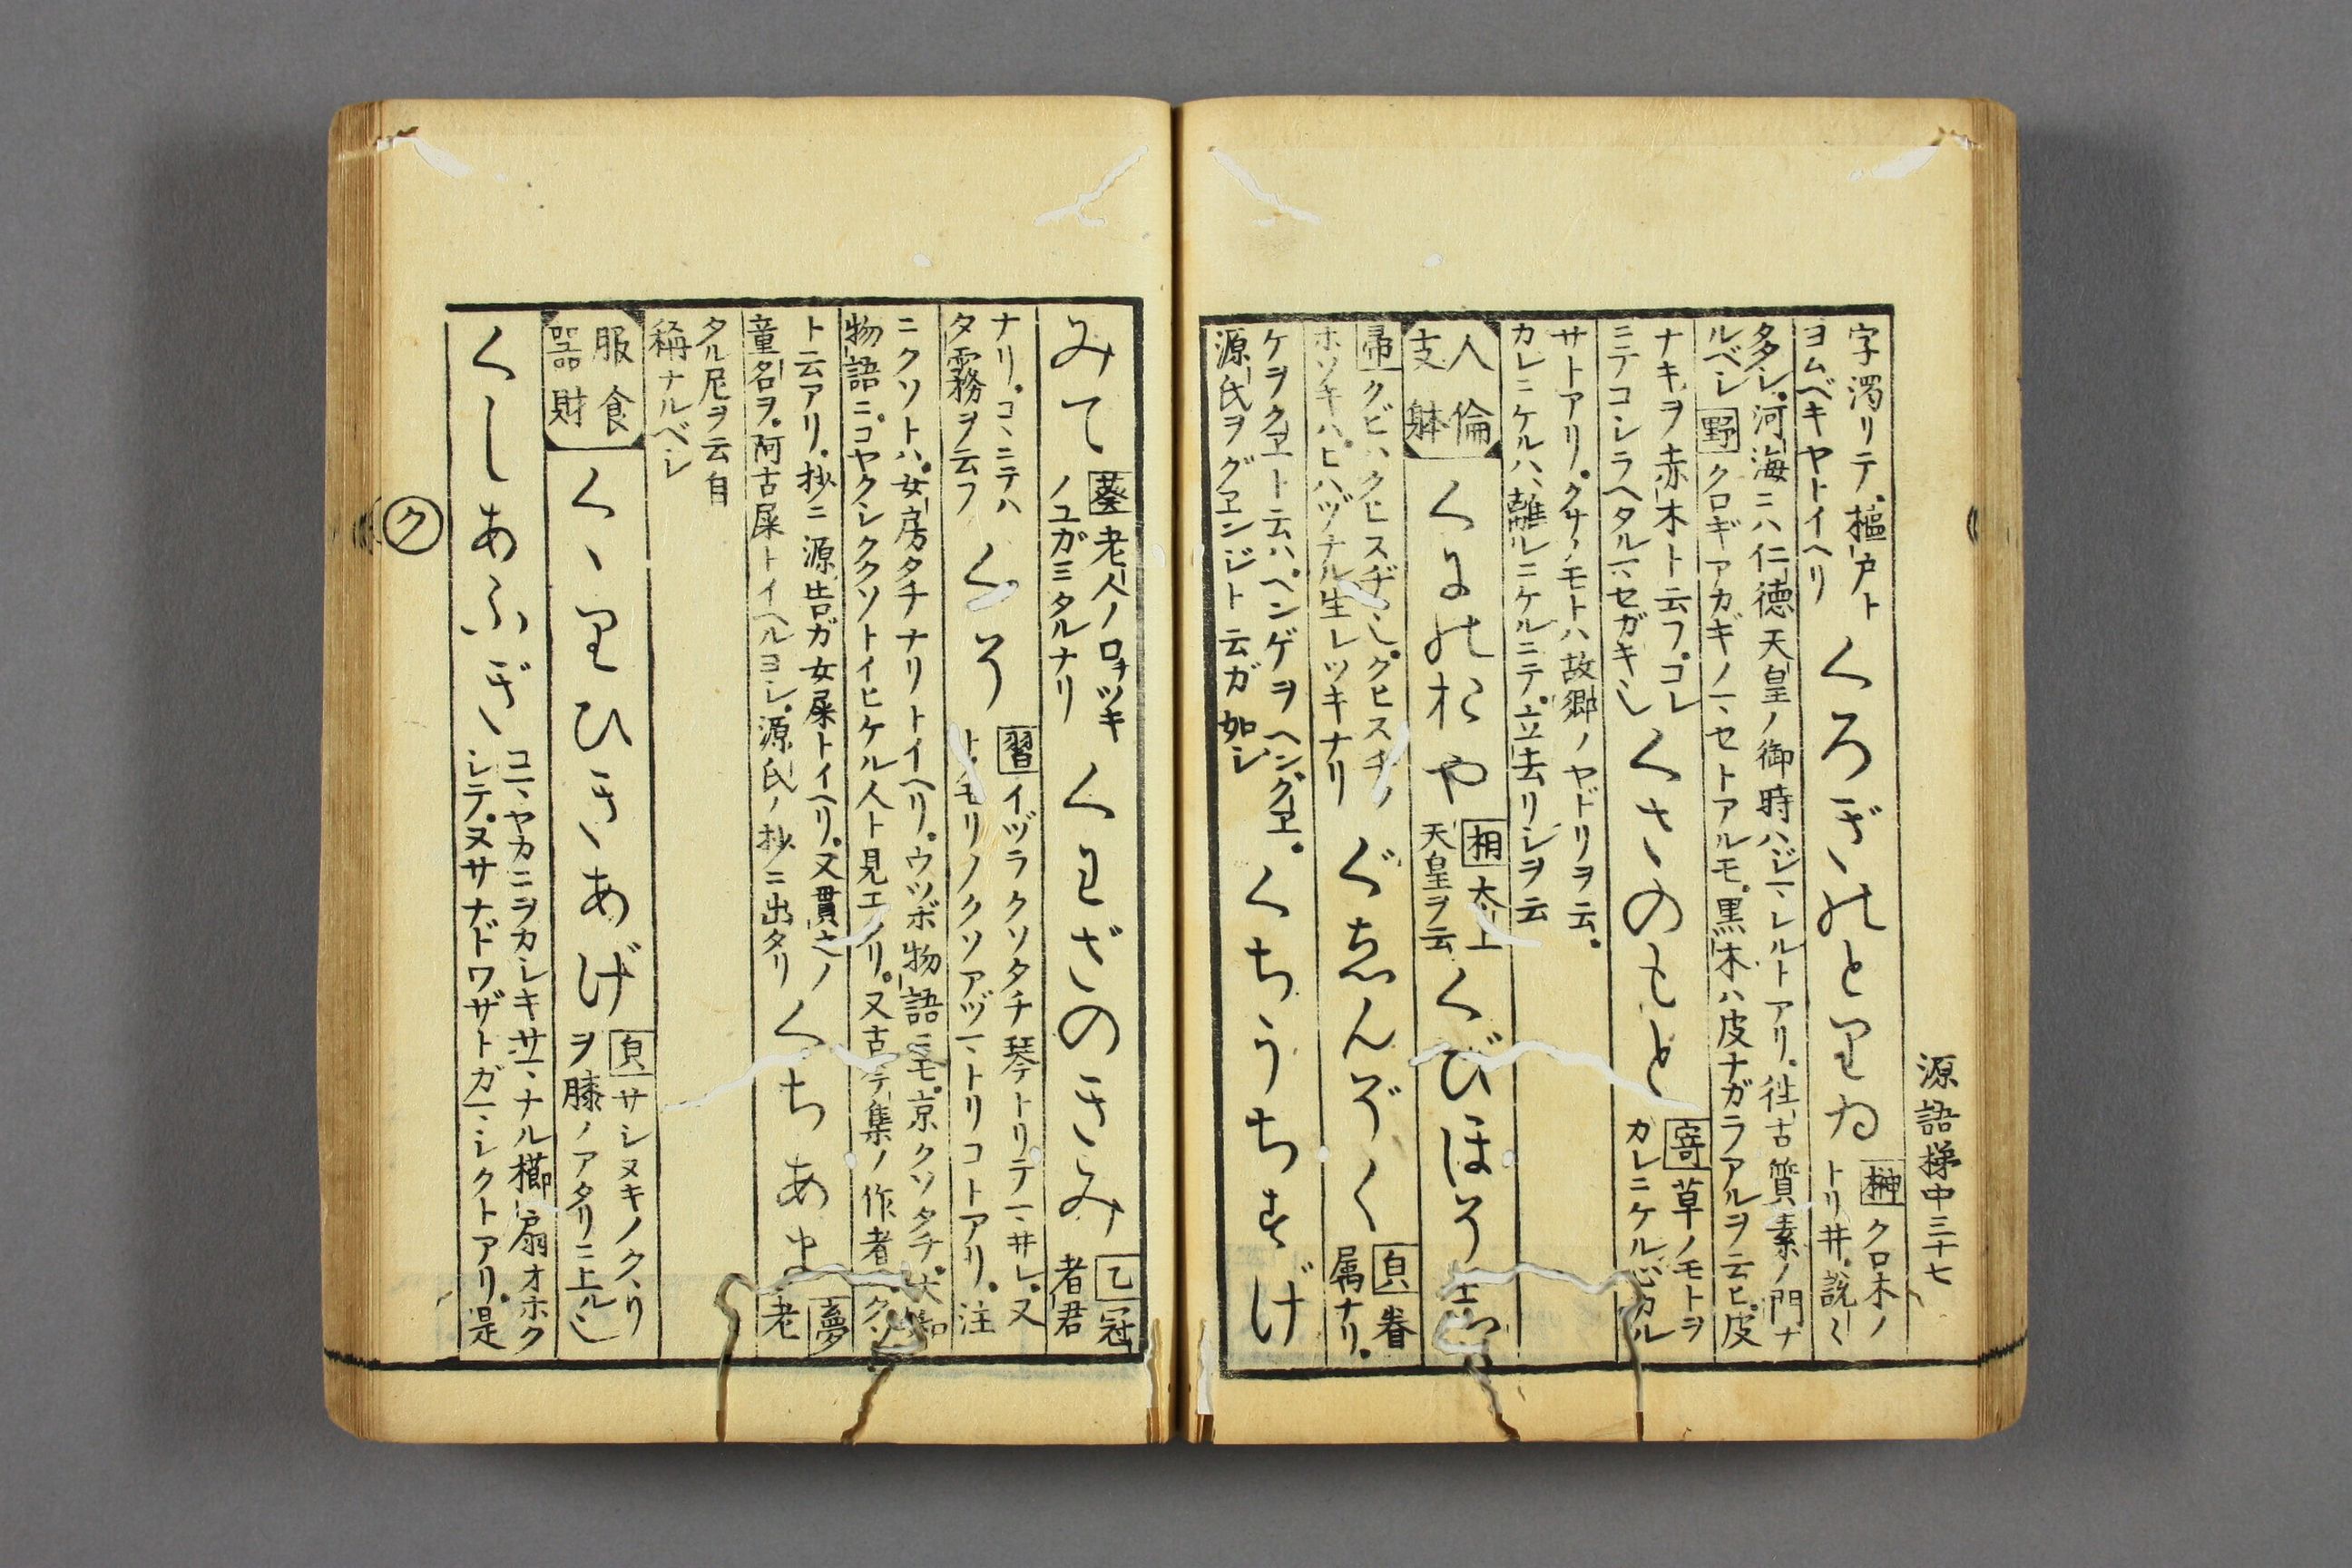 源語梯中三十七
字濁リテ樞戸ト
ヨムベキヤトイヘリ
くろぎのとりゐ
榊クロ木ノ
トリ井説々
多シ河海ニハ仁徳天皇ノ御時ハジマレルトアリ往古質素ノ門ナ
ルベシ 野クロギアカギノマセトアルモ黒木ハ皮ナガラアルヲ云ヒ皮
ナキヲ赤木ト云フコレ
ニテコシラヘタルマセガキ也
くさのもと
寄草ノモトヲ
カレニケル心カル
サトアリクサノモトハ故郷ノヤドリヲ云
カレニケルハ離ルニケルニテ立去リシヲ云
人倫
支躰
くにのおや
桐太上
天皇ヲ云
くびほそ
帚クビハクヒスヂ也クヒスヂノ
ホソキハヒハヅナル生レツキナリ
ぐゑんぞく
眷
属ナリ
ケヲクヱト云ハヘンゲヲヘングヱ
源氏ヲグヱンジト云ガ如シ
くちうちすげ
みて
葵老人ノ口ツキ
ノユガミタルナリ
くわざのきみ
乙冠
者君
ナリコヽニテハ
夕霧ヲ云フ
くそ
習イヅラクソタチ琴トリテマ井レ又
トモリノクソアヅマトリコトアリ注
ニクソトハ女房タチナリトイヘリウツボ物語ニモ京クソタチ
物語ニコヤクシククソトイヒケル人ト見エタリ又古今集ノ作者ヘクソ
ト云アリ抄ニ源告ガ女屎トイヘリ又貫之ノ
童名ヲ阿古屎トイヘルヨシ源氏ノ抄ニ出タリ
くちあま
夢老
タル尼ヲ云自
稱ナルベシ
服食
噐財
くゝりひきあげ
サシヌキノクヽリ
ヲ膝ノアタリニ上ル也
くしあふぎ
コマヤカニヲカシキサマナル櫛扇オホク
シテヌサナドワザトガマシクトアリ是
ク